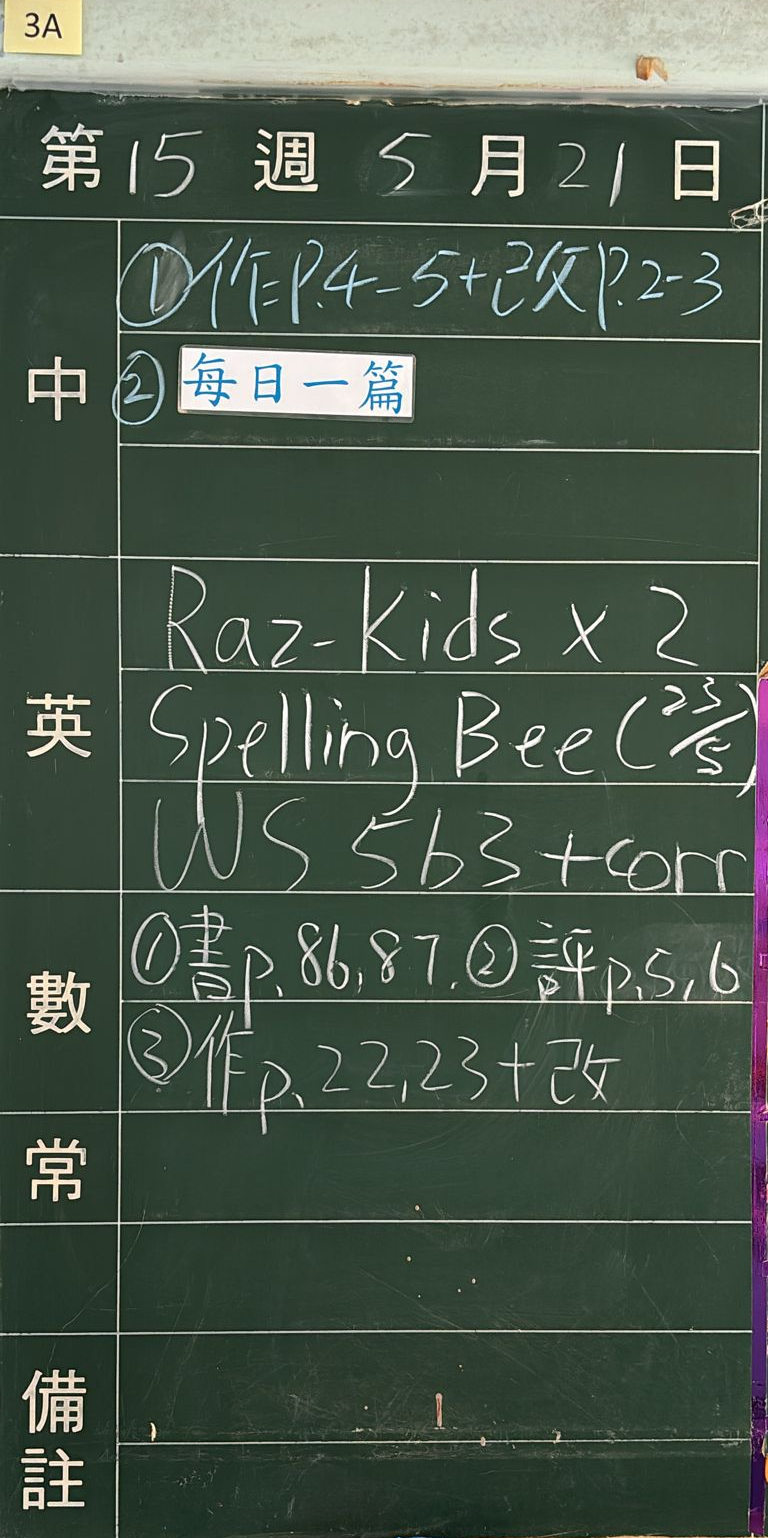 3A
第15週 5月21日
中
①作=P.4-5+改P.2-3
②每日一篇
英
Raz-Kids x 2
Spelling Bee (23/5)
WS 5b3 +corr
數
①書p.86,87.②評p.5,6
③作p.22,23+改
常
備註